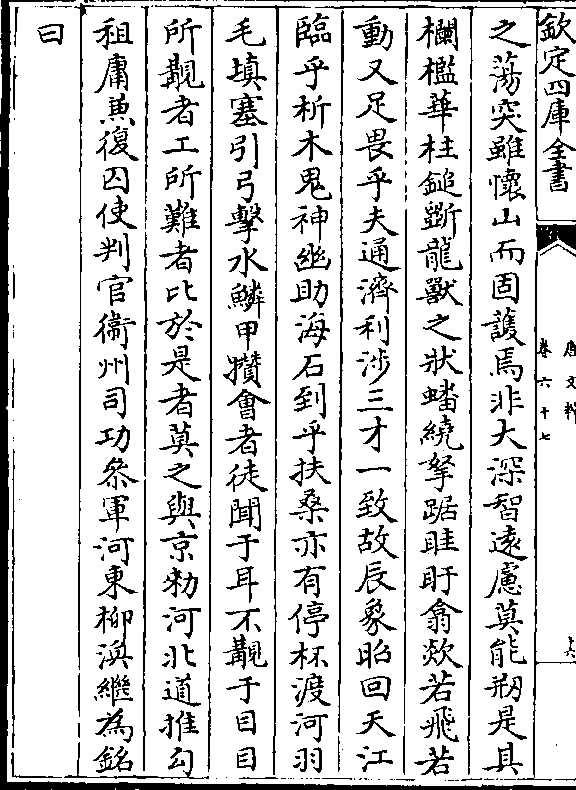 欽定四庫全書
唐文粹
卷六十七
十六
之蕩突雖懷山而固護焉非大深智遠慮莫能剏是其
欄檻華柱鎚斵龍獸之狀蟠繞拏踞睢盱翕欻若飛若
動又足畏乎夫通濟利涉三才一致故辰象昭回天江
臨乎析木鬼神幽助海石到乎扶桑亦有停杯渡河羽
毛填塞引弓擊水鱗甲攢會者徒聞于耳不覿于目目
所覿者工所難者比於是者莫之與京勑河北道推勾
租庸兼復囚使判官衞州司功叅軍河東柳渙繼為銘
曰